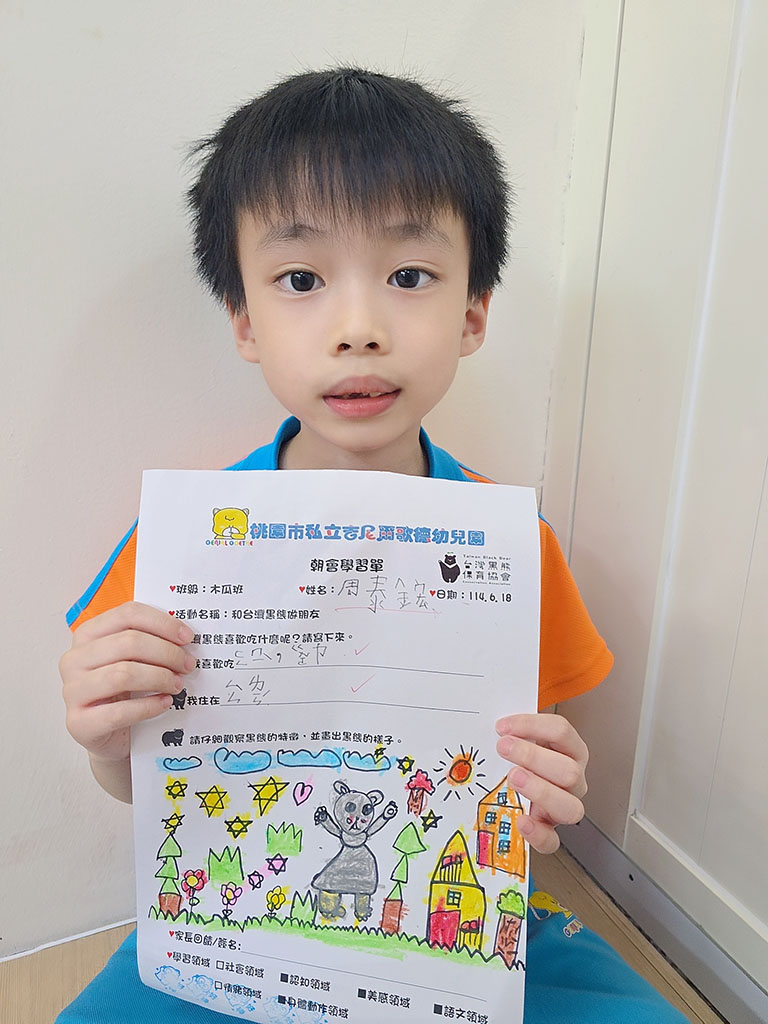 GENIAL GOETHE
桃園市私立吉尼爾歌德幼兒園
朝會學習單
Taiwan Black Bear
台灣黑熊
保育協會
Conservation Association
♥班級：木瓜班 ♥姓名：周泰鋐 ♥日期：114.6.18
♥活動名稱：和台灣黑熊做朋友
灣黑熊喜歡吃什麼呢？請寫下來。
我喜歡吃
我住在
請仔細觀察黑熊的特徵，並畫出黑熊的樣子。
♥家長回饋/簽名：
♥學習領域 □社會領域 ■認知領域 ■美感領域 ■語文領域
□情緒領域 ■身體動作領域